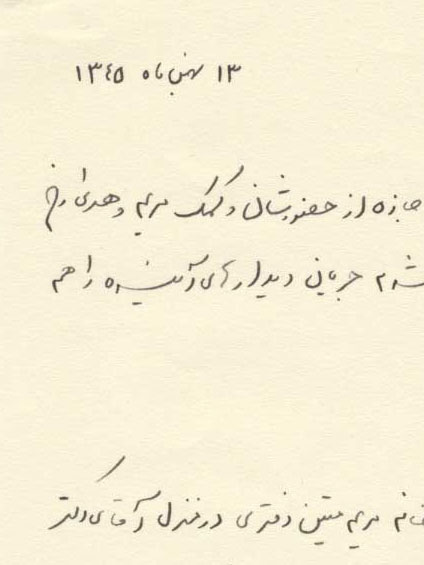 ۱۳ بهمن ماه ۱۳٤۵
اجازه از حضورشان و کمک مریم و هدی
شدم جریان دیدارهای آینده را هم
خانم مریم متین دفتری در منزل آقای دکتر